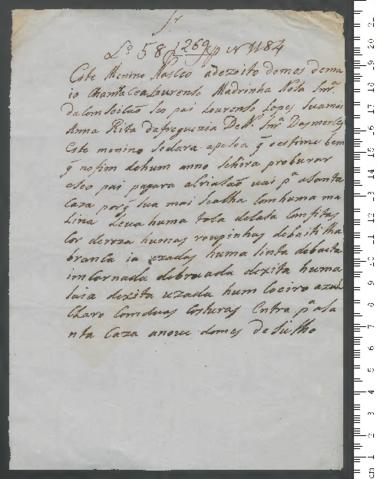 Lº 58 f 269 Nº 1184
Este Menino Nasceo a dezoito do mes de ma
io Chamace Lourenso Madrinha Nosa Snrª
da Conseisão seo pai Lourenso Lopes sua mai
Anna Rita da freguezia De N. Snrª Das merces
Este menino se dara a pesoa q o estime bem
q no fim de hum anno se hira precurar
e seo pai pagara a criasão vai pª a santa
Caza porq̃ sua mai se acha com huma ma
lina Leva huma tola de lasa com fitas
Cor de roza humas roupinhas de baitilha
branca ja uzadas huma sinta de baeta
incarnada debruada de xita huma
saia de xita uzada hum Coeiro azul
Claro Com duas Costuras Entra pª a sa
nta Caza a nove do mes De Julho